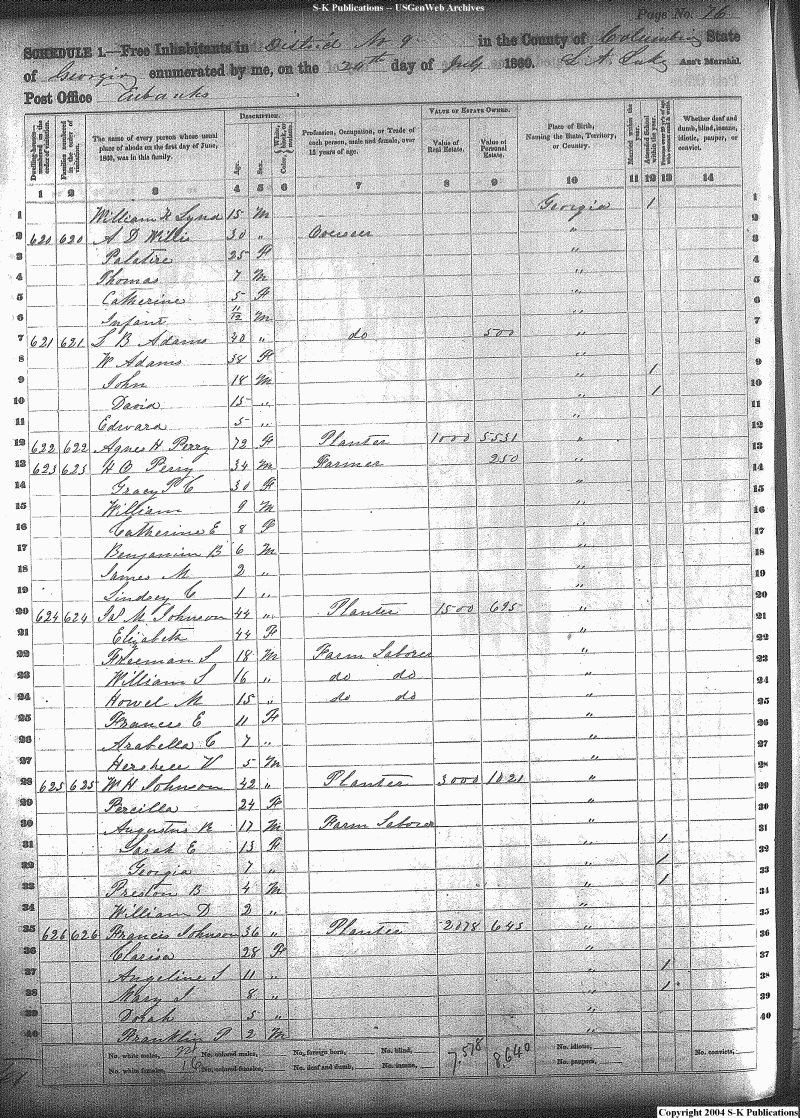 S-K Publications -- USGenWeb Archives
Page No. 76
SCHEDULE 1.—Free Inhabitants in District No 9 in the County of Columbia State
of Georgia enumerated by me, on the 20th day of July 1860. Ass't Marshal.
Post Office Eubanks
DESCRIPTION. VALUE OF ESTATE OWNED.
Dwelling-houses numbered in the order of visitation. Families numbered in the order of visitation. The name of every person whose usual place of abode on the first day of June, 1860, was in this family. Age. Sex. Color, White, black, or mulatto. Profession, Occupation, or Trade of each person, male and female, over 15 years of age. Value of Real Estate. Value of Personal Estate. Place of Birth, Naming the State, Territory, or Country. Married within the year. Attended School within the year. Whether deaf and dumb, blind, insane, idiotic, pauper, or convict.
1 2 3 4 5 6 7 8 9 10 11 12 13 14
1 William H Lynd 15 M Georgia 1 1
2 620 620 A D Willis 30 " Overseer " 2
3 Palatire 25 F " 3
4 Thomas 7 M " 4
5 Catherine 5 F " 5
6 Infant 11/12 M " 6
7 621 621 L B Adams 40 " do 500 " 7
8 W Adams 38 F " 8
9 John 18 M " 1 9
10 David 15 " " 1 10
11 Edward 5 " " 11
12 622 622 Agnes H Perry 72 F Planter 1000 5531 " 12
13 623 623 H O Perry 34 M Farmer 250 " 13
14 Gracy P C 30 F " 14
15 William 9 M " 15
16 Catherine E 8 F " 16
17 Benjamin B 6 M " 17
18 James M 2 " " 18
19 Lindsey C 1 " " 19
20 624 624 Jas M Johnson 44 " Planter 1500 695 " 20
21 Elizabeth 44 F " 21
22 Freeman S 18 M Farm Laborer " 22
23 William S 16 " do do " 23
24 Howel M 15 " do do " 24
25 Francis E 11 F " 25
26 Arabella C 7 " " 26
27 Hershell V 5 M " 27
28 625 625 W H Johnson 42 " Planter 3000 1021 " 28
29 Percilla 24 F " 29
30 Augustus R 17 M Farm Laborer " 30
31 Sarah E 13 F " 1 31
32 Georgia 7 " " 1 32
33 Preston B 4 M " 1 33
34 William D 2 " " 34
35 626 626 Francis Johnson 36 " Planter 2078 645 " 35
36 Clarisa 28 F " 36
37 Angeline S 11 " " 1 37
38 Mary S 8 " " 1 38
39 Dorah 5 " " 39
40 Franklin P 2 M " 40
No. white males, No. colored males, No. foreign born, No. blind, 7,578 8,640 No. idiotic,
No. white females, 16 No. colored females, No. deaf and dumb, No. insane, No. paupers, No. convicts,
Copyright 2004 S-K Publications